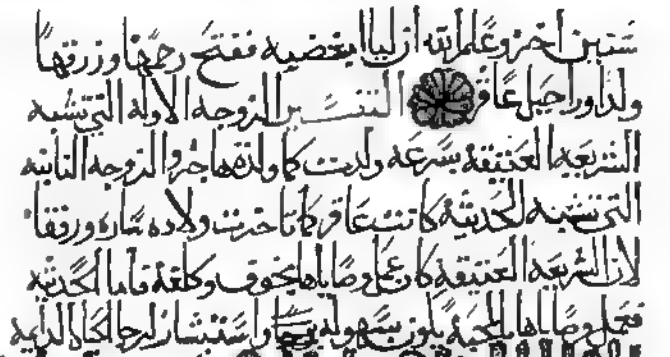 سنتين اخر وعلم الله ان ليا ابغضيه ففتح رحمها ورزقها
ولدا وراحيل عاقر التفسير الزوجه الاوله التي تشبه
الشريعه العتيقه بسرعه ولدت كما ولدة هاجر والزوجه الثانيه
التي تشبه الحديثه كانت عاقر كما تاخرت ولاده ساره ورفقا
لان الشريعه العتيقه كان عمل وصاياها بخوف وكلفه فاما الحديثه
فعمل وصاياها بالمحبه يكون بسهوله واستبشار لرجا الحياه الدايمه